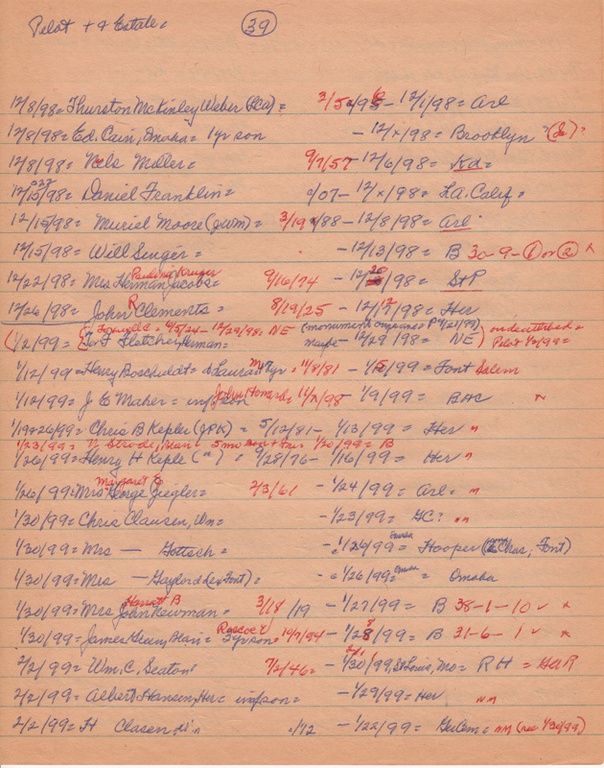 Pilot + & Estate = 39
12/8/98 = Thurston McKinley Weber (PCA) = 3/5 - 12/1/98 = Arl
12/8/98 = Ed. Cain, Omaha = 1yr son - 12/x/98 = Brooklyn
12/8/98 = Nels Moller = 9/7/57 - 12/6/98 = Kd =
12/15/98 = Daniel Franklin = 0/07 - 12/x/98 = LA. Calif =
12/15/98 = Muriel Moore (JWM) = 3/19 /88 - 12/8/98 = Arl
12/15/98 = Will Singer = - 12/13/98 = B 30-9-① or ②
Pauline Kruger
12/22/98 = Mrs Herman Jacobs = 9/16/74 - 12/20/98 = S+P
12/26/98 = John R Clements = 8/19/25 - 12/17/98 = Her
= 4/5/24 - 12/29/98 = NE (monument 4/21/99)
1/2/99 = Fletcher, Herman = - 12/29/98 = NE) undoubted = Pilot
1/12/99 = Henry = 11/8/81 - 1/5/99 = Font Salem
1/10/99 = J E Maher = inf son John Howard = - 1/9/99 = BAC
1/19 26/99 = Chris B Kepler (JPK) = 5/12/81 - 1/13/99 = Her "
1/23/99 = Strode, Blair = 5 mo son = 1/20/99 = B
1/26/99 = Henry H Keple (") = 9/28/76 - 1/16/99 = Her "
Margaret
1/26/99 = Mrs George Ziegler = 2/3/61 - 1/24/99 = Arl =
1/30/99 = Chris Clausen, Wm = - 1/23/99 = GC?
1/30/99 = Mrs — Gottsch = - 1/26/99 = Hooper Chas, Font)
1/30/99 = Mrs — Gaylord (ex Font) = - 1/26/99 = Omaha
Harriet B
1/30/99 = Mrs John Newman = 3/18/19 - 1/27/99 = B 38-1-10
1/30/99 = James Green, Blair = 3yr son Roscoe = - 1/28/99 = B 31-6-1
2/2/99 = Wm. C. Seaton 7/2/46 = - 1/30/99, St Louis, Mo = RH = GAR
2/2/99 = Albert Hansen, Her = inf son = - 1/29/99 = Her
2/2/99 = H Clasen = /12 - 1/22/99 = GerCem = (see 1/30/99)